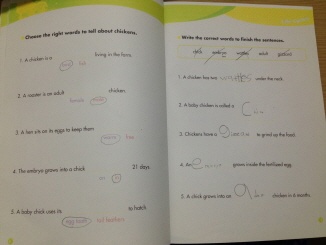 Choose the right words to tell about chickens.
1. A chicken is a living in the farm.
bird
2. A rooster is an adult chicken.
female male
3. A hen sits on its eggs to keep them
warm free
4. The embryo grows into a chick 21 days.
in
5. A baby chick uses its to hatch.
egg tooth tail feathers
Write the correct words to finish the sentences.
chick embryo wattles adult gizzard
1. A chicken has two wattles under the neck.
2. A baby chicken is called a
3. Chickens have a to grind up the food.
4. An grows inside the fertilized egg.
5. A chick grows into an chicken in 6 months.